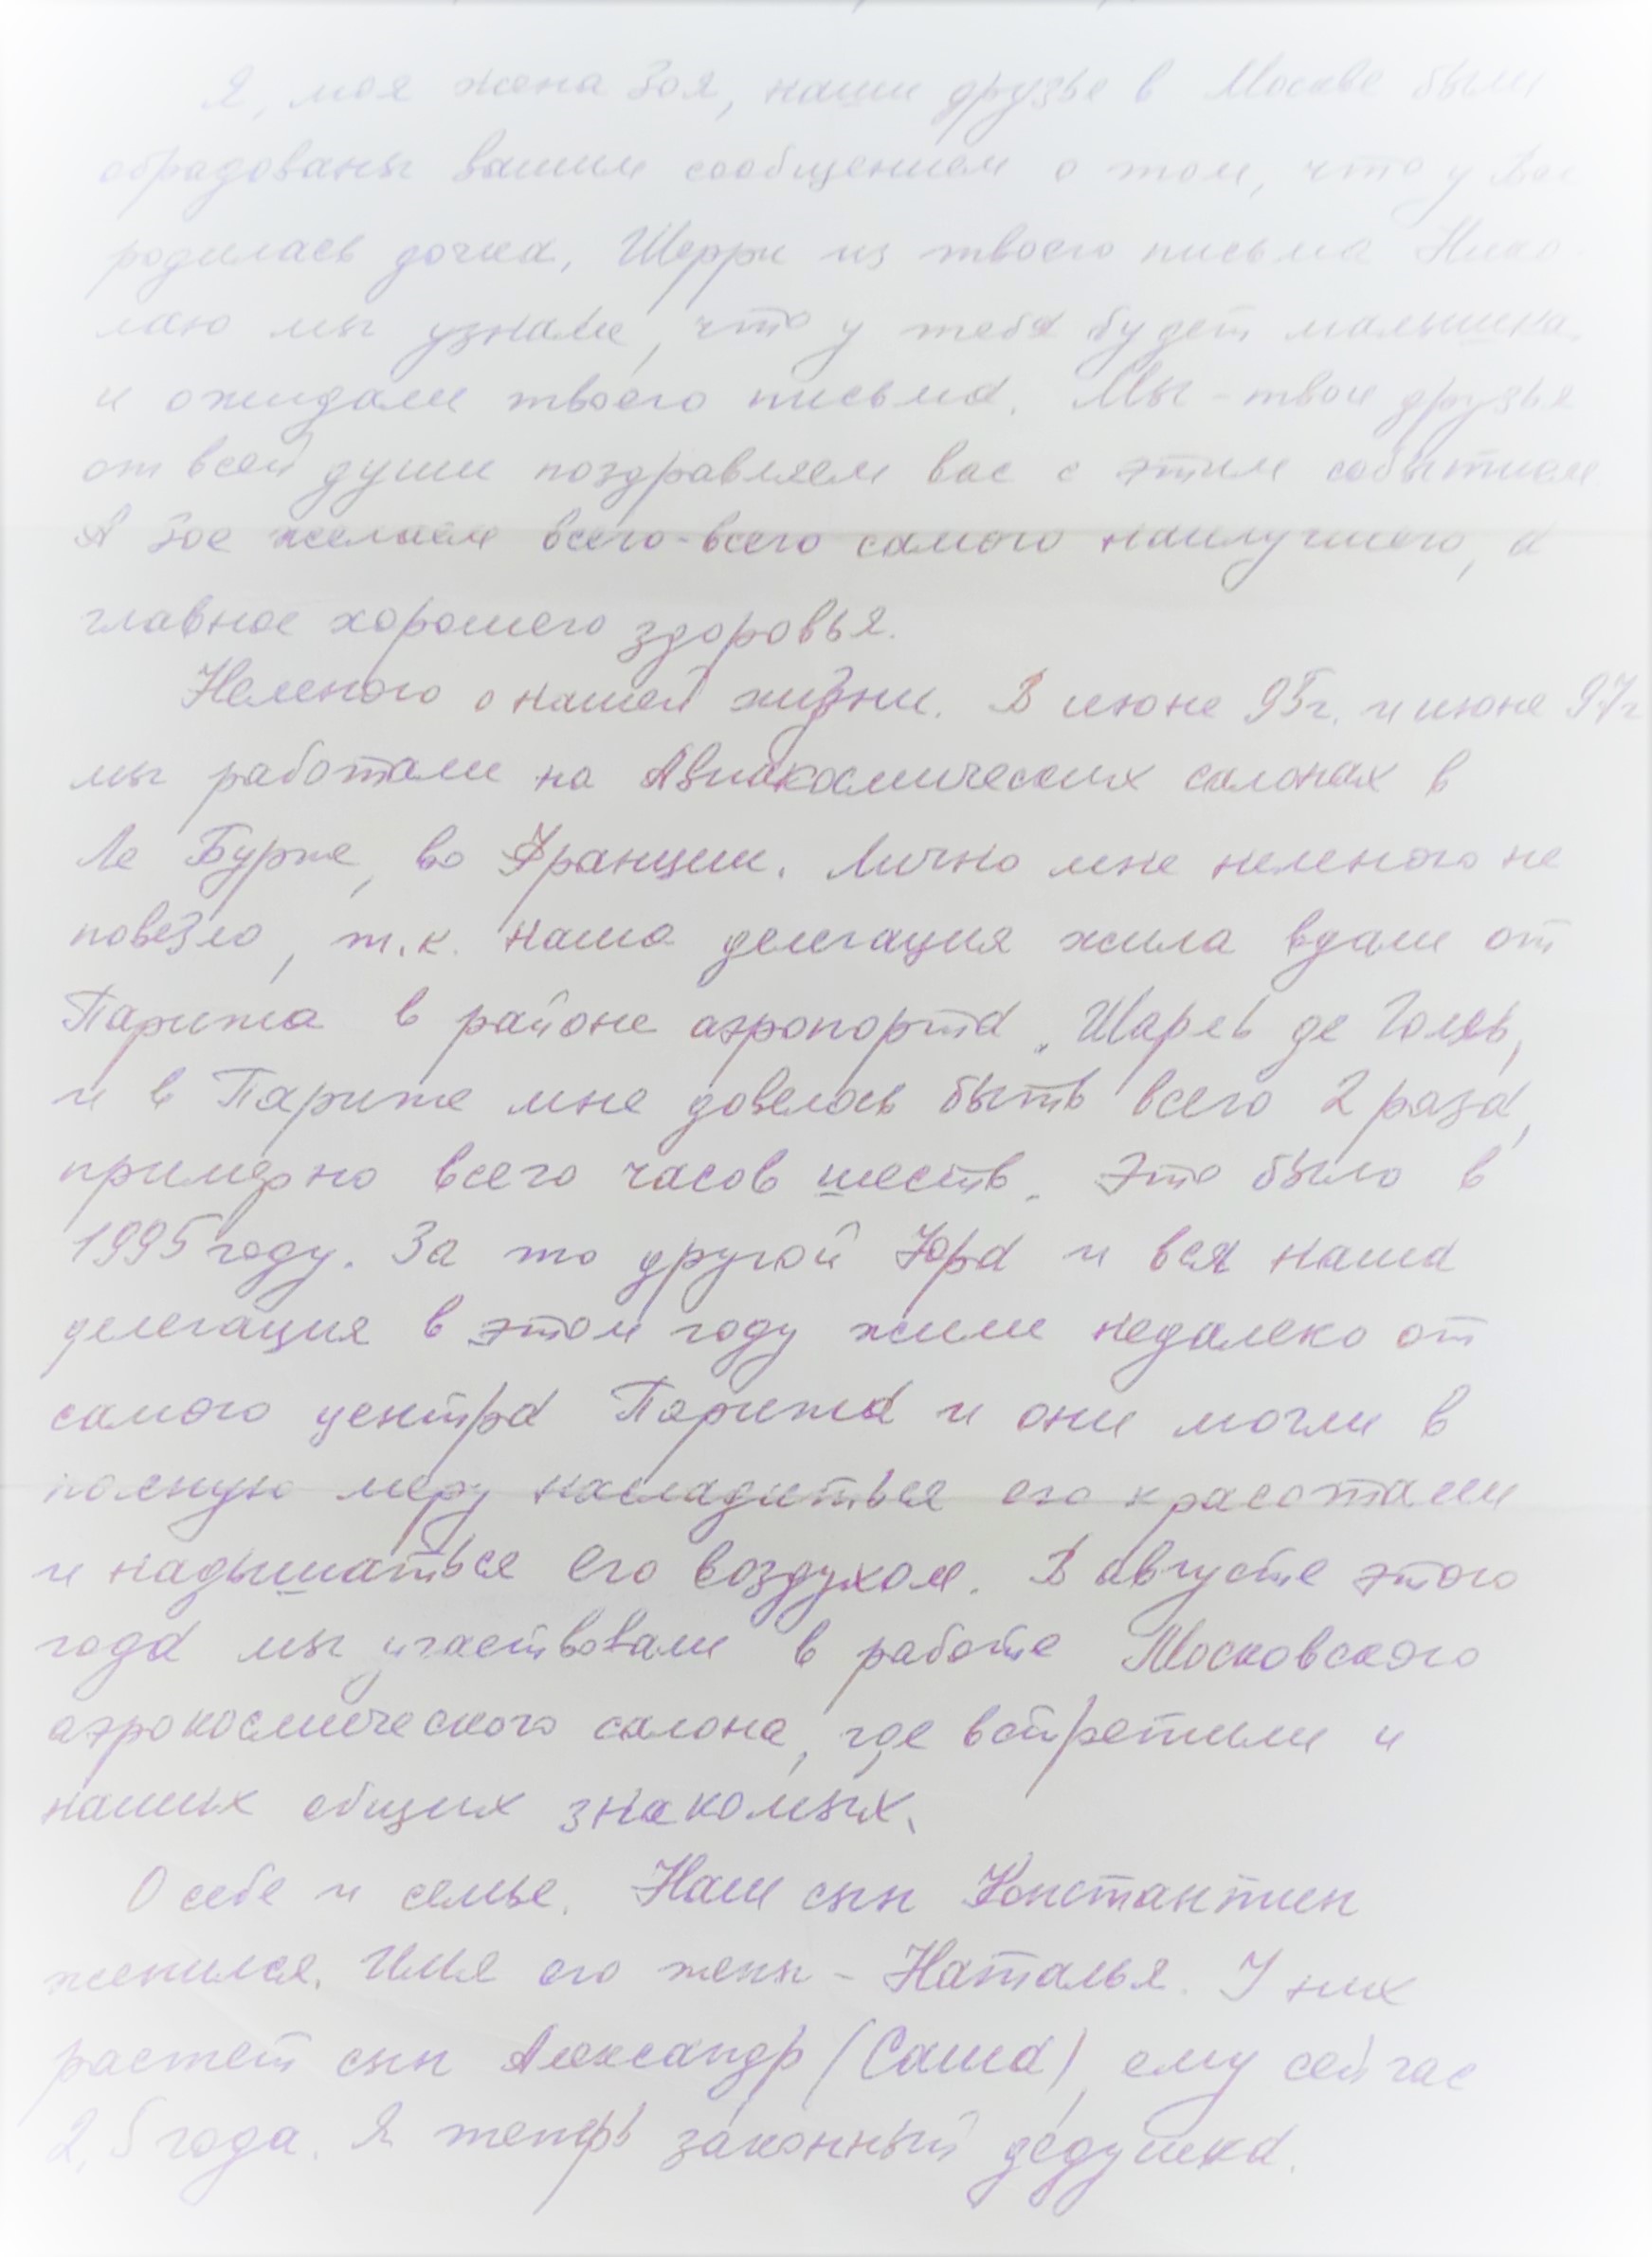 Я, моя жена Зоя, наши друзья в Москве были
обрадованы вашим сообщением о том, что у Вас
родилась дочка, Шерри из твоего письма Нико-
лаю мы узнали, что у тебя будет малышка
и ожидали твоего письма. Мы - твои друзья
от всей души поздравляем вас с этим событием.
А Зое желаем всего-всего самого наилучшего, а
главное хорошего здоровья.
Немного о нашей жизни. В июне 95г. и июне 97г
мы работали на Авиакосмических салонах в
Ле Бурже, во Франции. Лично мне немного не
повезло, т.к. наша делегация жила вдали от
Парижа в районе аэропорта "Шарль де Голль,
и в Париже мне довелось быть всего 2 раза,
примерно всего часов шесть. Это было в
1995 году. За то другой Юра и вся наша
делегация в этом году жили недалеко от
самого центра Парижа и они могли в
полную меру насладиться его красотами
и надышаться его воздухом. В августе этого
года мы участвовали в работе Московского
аэрокосмического салона, где встретили и
наших общих знакомых.
О себе и семье. Наш сын Константин
женился. Имя его жены - Наталья. У них
растет сын Александр (Саша), ему сейчас
2,5 года. Я теперь законный дедушка.